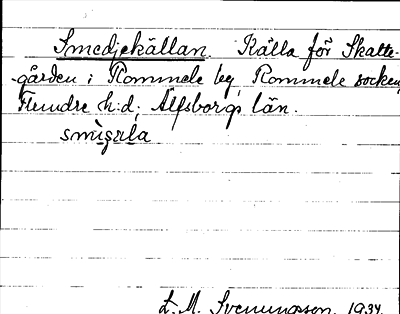 Smedjekällan. Källa för Skatte-
gården i Rommele by, Rommele socken,
Flundre h:d, Älfsborgs län.
L. M. Svenungsson. 1934.